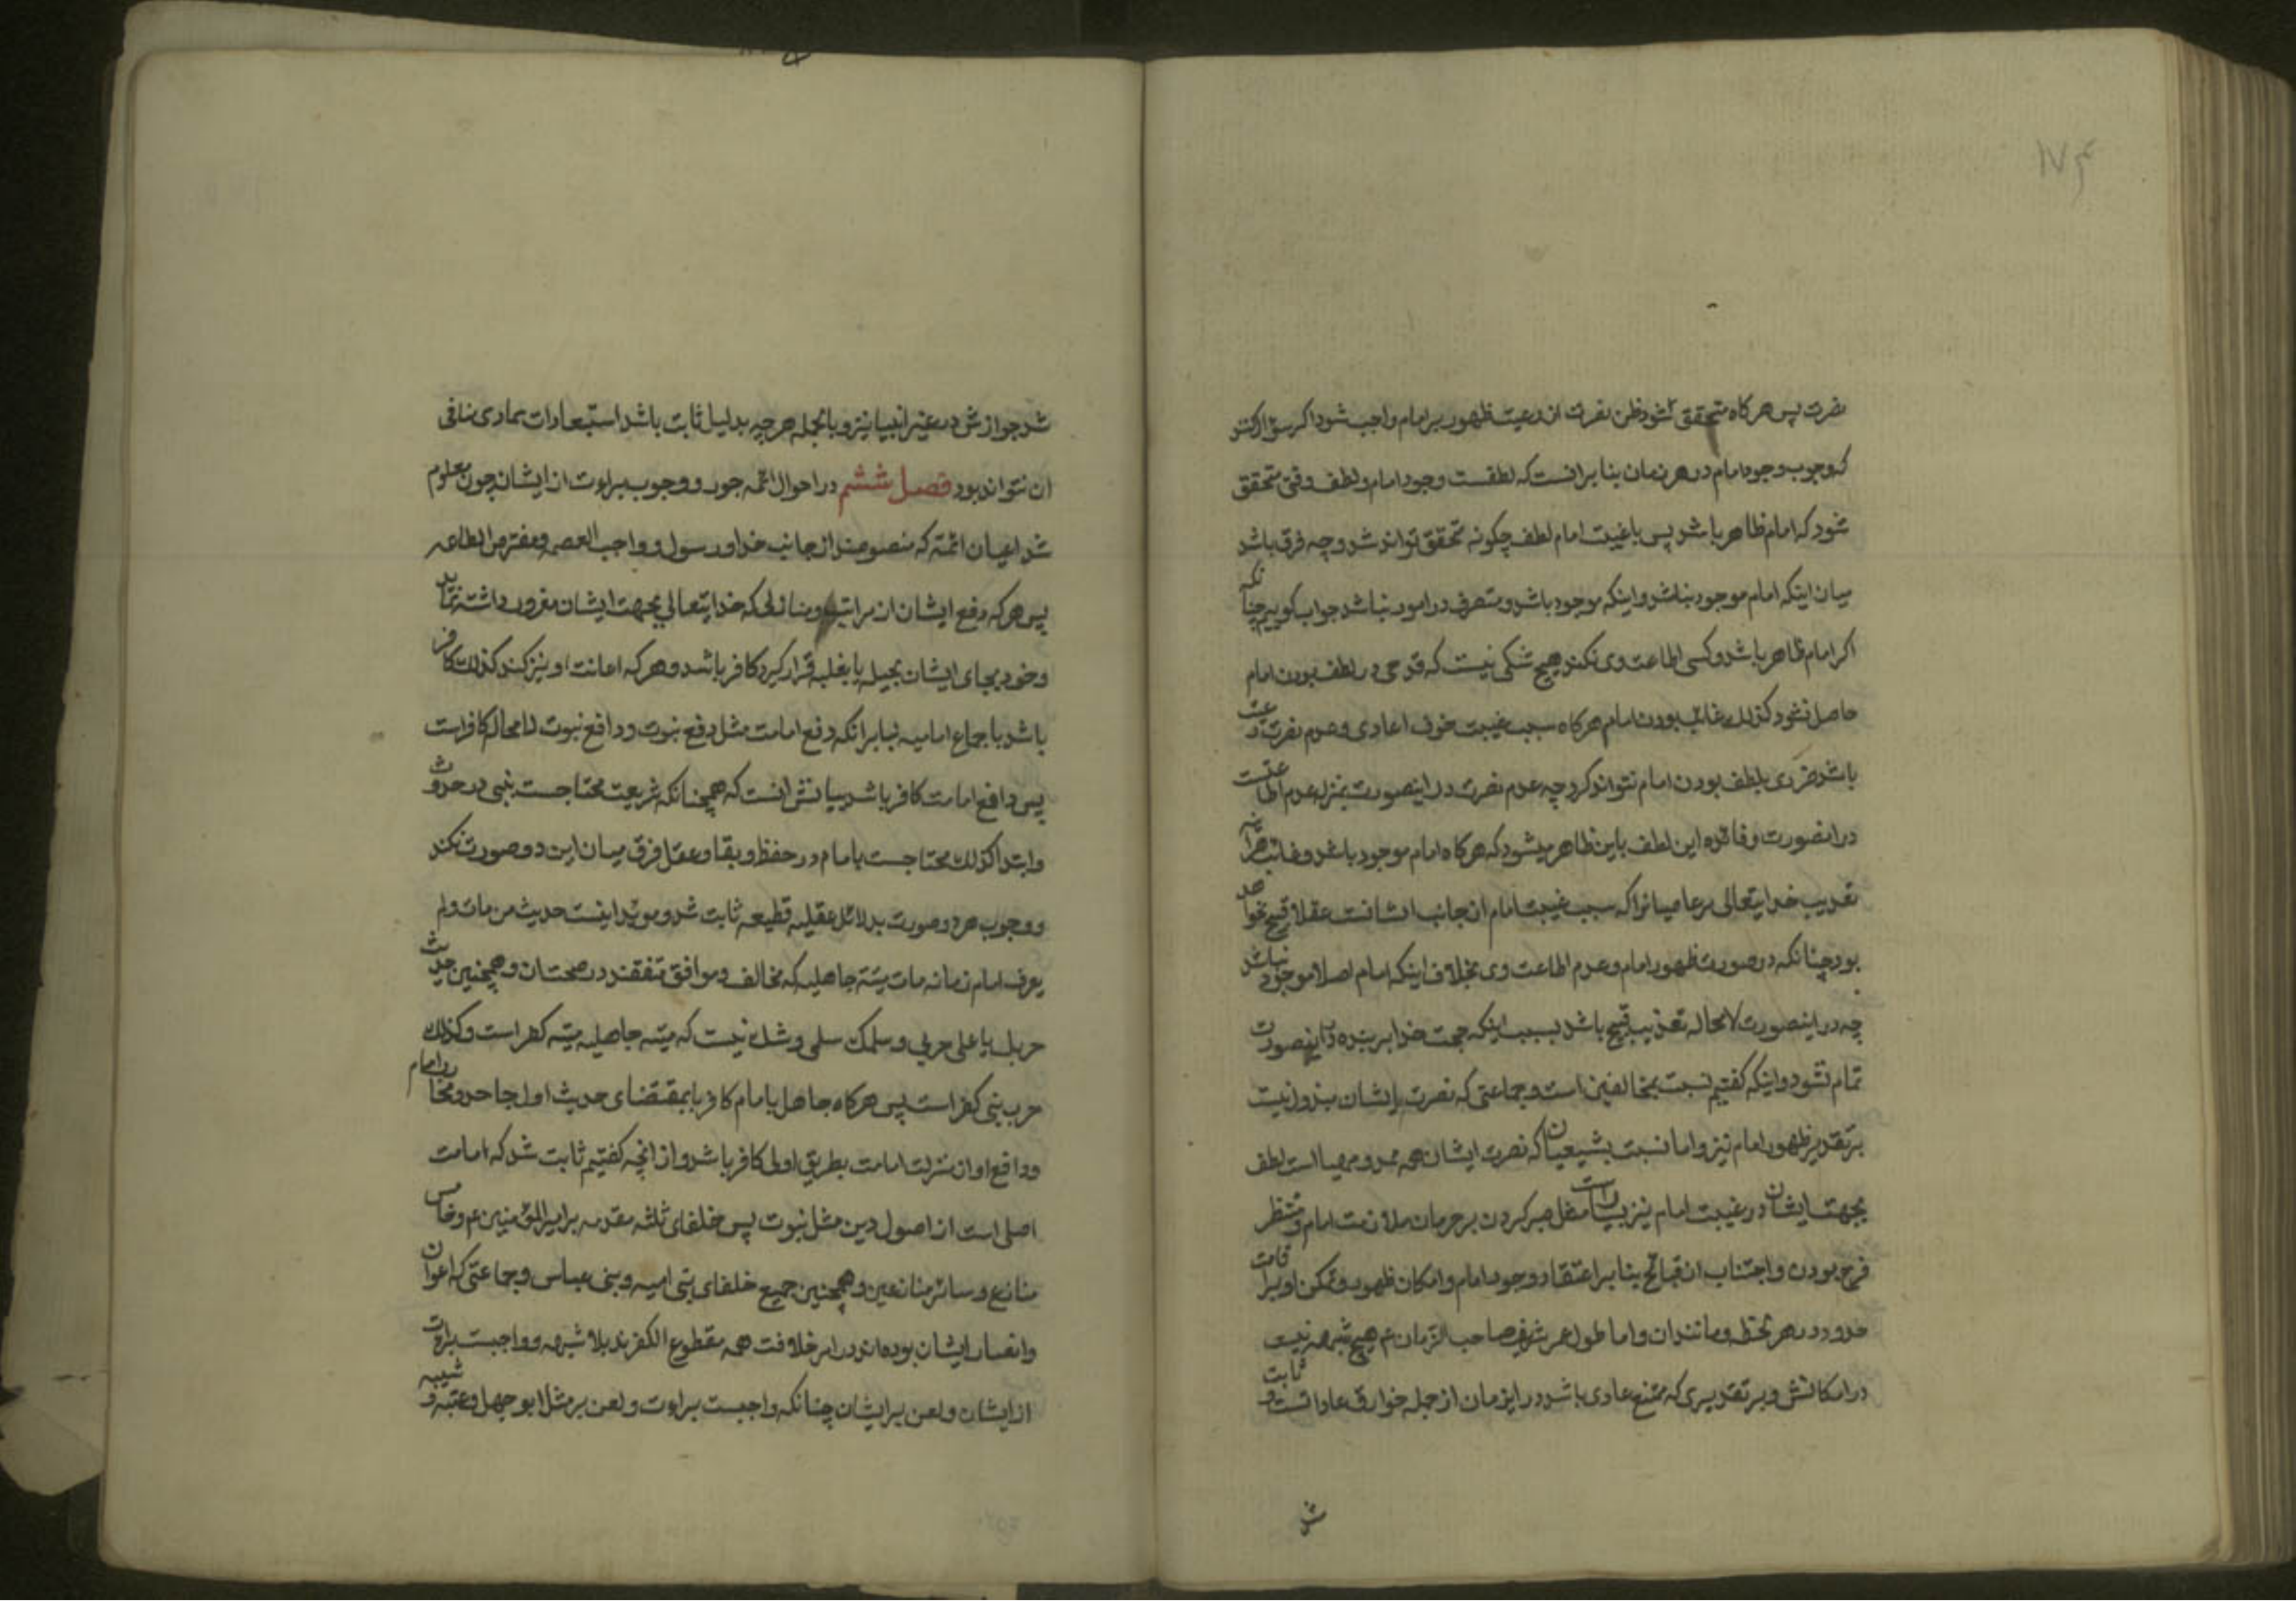 ۱۷۴
نصرت پس هرکاه متحقق شود ظن نصرت از رعیت ظهور بر امام واجب شود اکر سؤال کنند
که وجوب وجود امام در هر زمان بنا بر انست که لطفست وجود امام و لطف وقتی متحقق
شود که امام ظاهر باشد پس با غیبت امام لطف چکونه متحقق تواند شد و چه فرق باشد
میان اینکه امام موجود نباشد و اینکه موجود باشد و متصرف در امور نباشد جواب کوییم چنانکه
اکر امام ظاهر باشد و کسی اطاعت وی نکند هیچ شکی نیست که قدحی در لطف بودن امام
حاصل نشود کذلک غائب بودن امام هرکاه سبب غیبت خوف اعادی و عدم نصرت رعیت
باشد ضرری بلطف بودن امام نتواند کرد چه عدم نصرت در اینصورت بمنزله عدم اطاعتست
در انصورت و فائده این لطف باین ظاهر میشود که هرکاه امام موجود باشد و غائب هرآینه
تعذیب خدایتعالی مر عاصیانرا که سبب غیبت امام از جانب ایشانست عقلا قبیح نخواهد
بود چنانکه در صورت ظهور امام و عدم اطاعت وی بخلاف اینکه امام اصلا موجود نباشد
چه در اینصورت لامحاله تعذیب قبیح باشد بسبب اینکه حجت خدا بر بنده در اینصورت
تمام نشود و اینکه کفتیم نسبت بمخالفین است و جماعتی که نصرت ایشان مبذول نیست
بر تقدیر ظهور امام نیز و اما نسبت بشیعیان که نصرت ایشان همه ممد و مهیا است لطف
بجهت ایشان در غیبت امام نیز بسیار است مثل صبر کردن بر حرمان ملازمت امام و منتظر
فرج بودن و اجتناب از قبائح بنا بر اعتقاد وجود امام و امکان ظهور و تمکن او بر اقامت
حدود در هر لحظه و مانند ان و اما طول عمر شریف صاحب الزمان ع هیچ شبهه نیست
در امکانش و بر تقدیری که ممتنع عادی باشد در این زمان از جمله خوارق عاداتست و ثابت
ش
شد جوازش در غیر انبیا نیز و بالجمله هرچه بدلیل ثابت باشد استبعادات بماری منافی
ان نتواند بود فصل ششم در احوال ائمه جور و وجوب براءت از ایشان چون معلوم
شد اعیان ائمه که منصوصند از جانب خدا و رسول و واجب العصمه و مفترض الطاعه
پس هرکه دفع ایشان از مراتب و منازلی که خدایتعالی بجهت ایشان مقرر داشته نماید
و خود بجای ایشان بحیله یا بغلبه قرار کیرد کافر باشد و هرکه اعانت او نیز کند کذلک کافر
باشد باجماع امامیه بنا بر انکه دفع امامت مثل دفع نبوت و دافع نبوت لامحاله کافر است
پس دافع امامت کافر باشد بیانش انست که همچنانکه شریعت محتاجست بنبی در حدوث
و ابتدا کذلک محتاجست بامام در حفظ و بقا و عقل فرق میان این دو صورت نکند
و وجوب هر دو صورت بدلائل عقلیه قطعیه ثابت شد و موید اینست حدیث من مات و لم
یعرف امام زمانه مات میتة جاهلیه که مخالف و موافق متفقند در صحت ان و همچنین حدیث
حربک یا علی حربی و سلمک سلمی و شک نیست که میته جاهلیه میته کفر است و کذلک
حرب نبی کفر است پس هرکاه جاهل بامام کافر بمقتضای حدیث اول جاحد و محارب امام
و دافع او از منزلت امامت بطریق اولی کافر باشد و از انچه کفتیم ثابت شد که امامت
اصلی است از اصول دین مثل نبوت پس خلفای ثلثه مقدمه بر امیرالمؤمنین ع و خامس
منازع و سائر منازعین و همچنین جمیع خلفای بنی امیه و بنی عباس و جماعتی که اعوان
و انصار ایشان بوده اند در امر خلافت همه مقطوع الکفرند بلا شبهه و واجبست براءت
از ایشان و لعن بر ایشان چنانکه واجبست براءت و لعن بر مثل ابو جهل و عتبه و شیبه